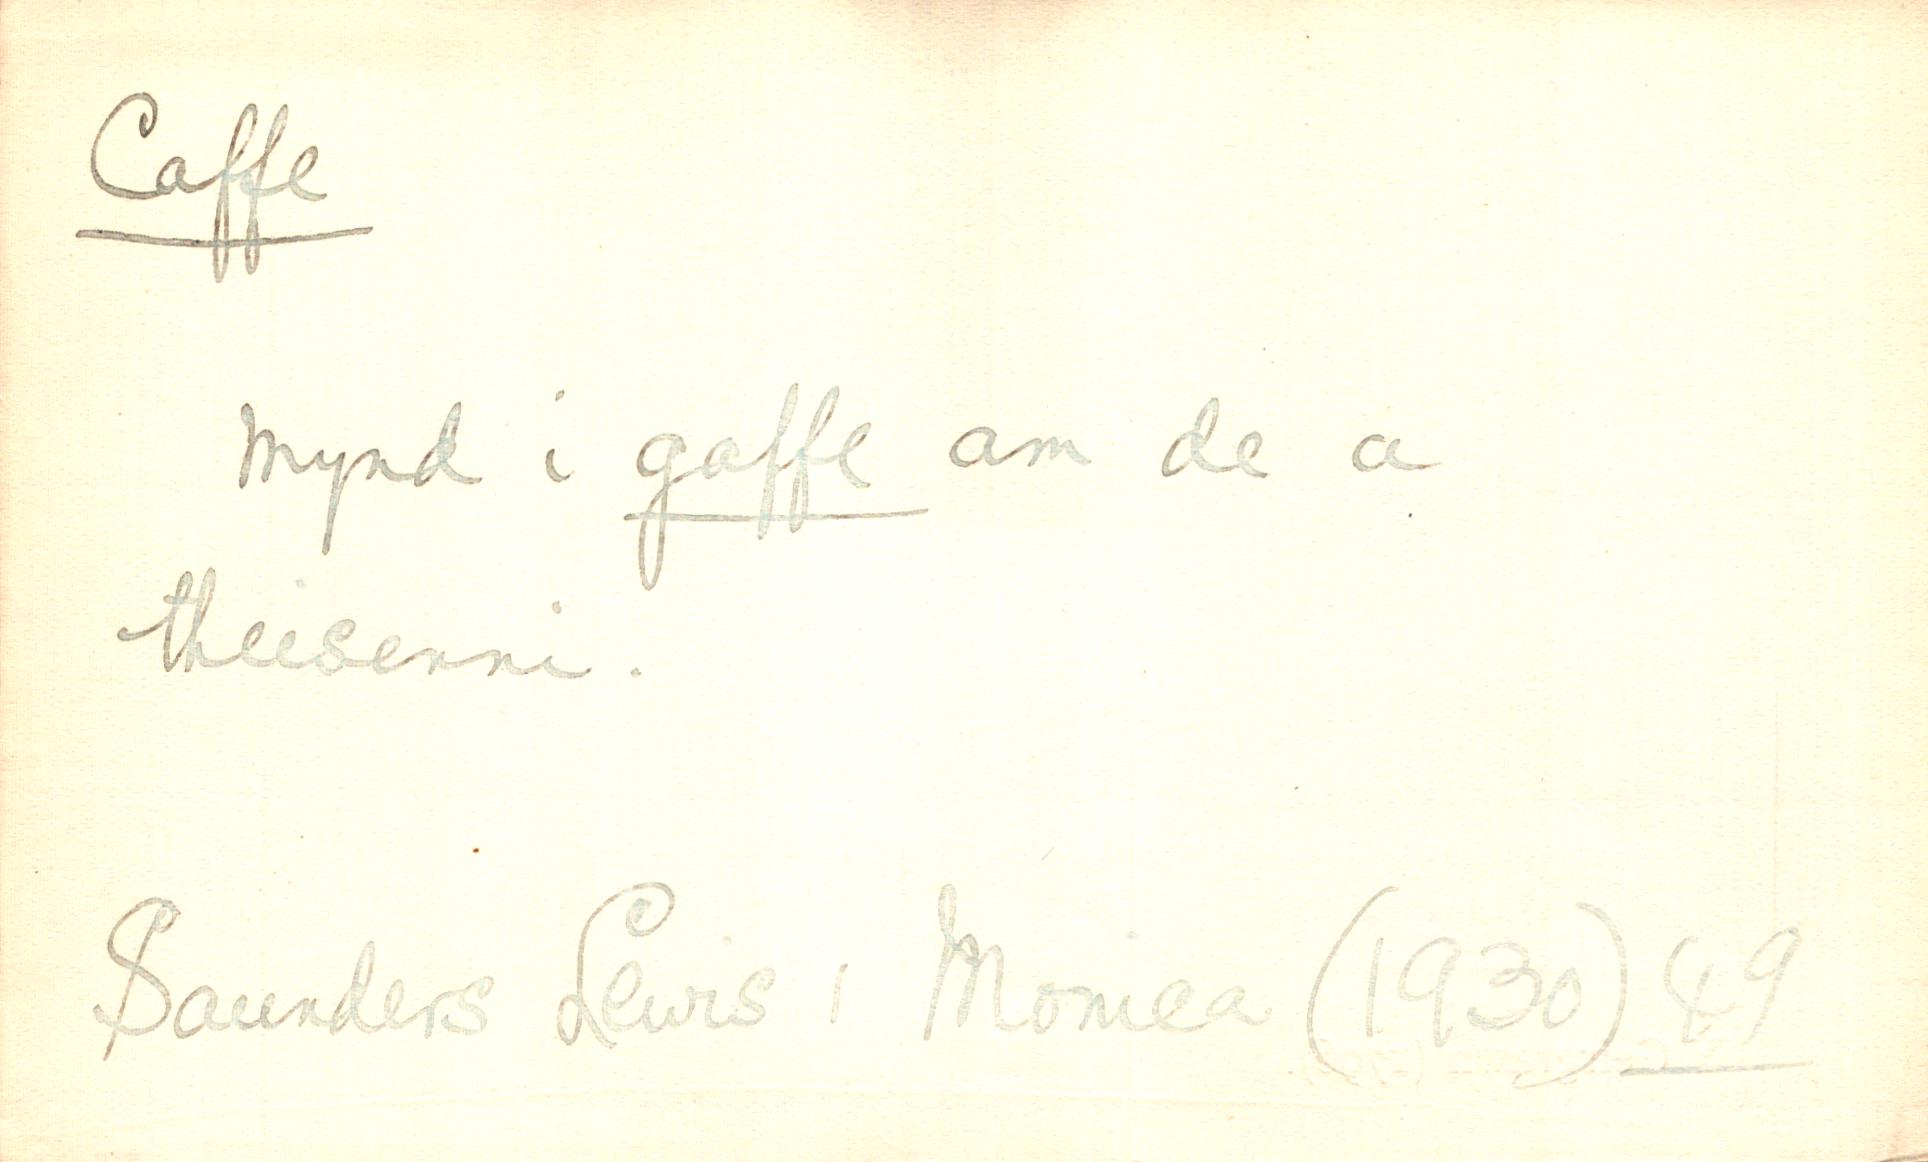 Caffe
Mynd i gaffe am de a
theisenni.
Saunders Lewis, Monica (1930) 49